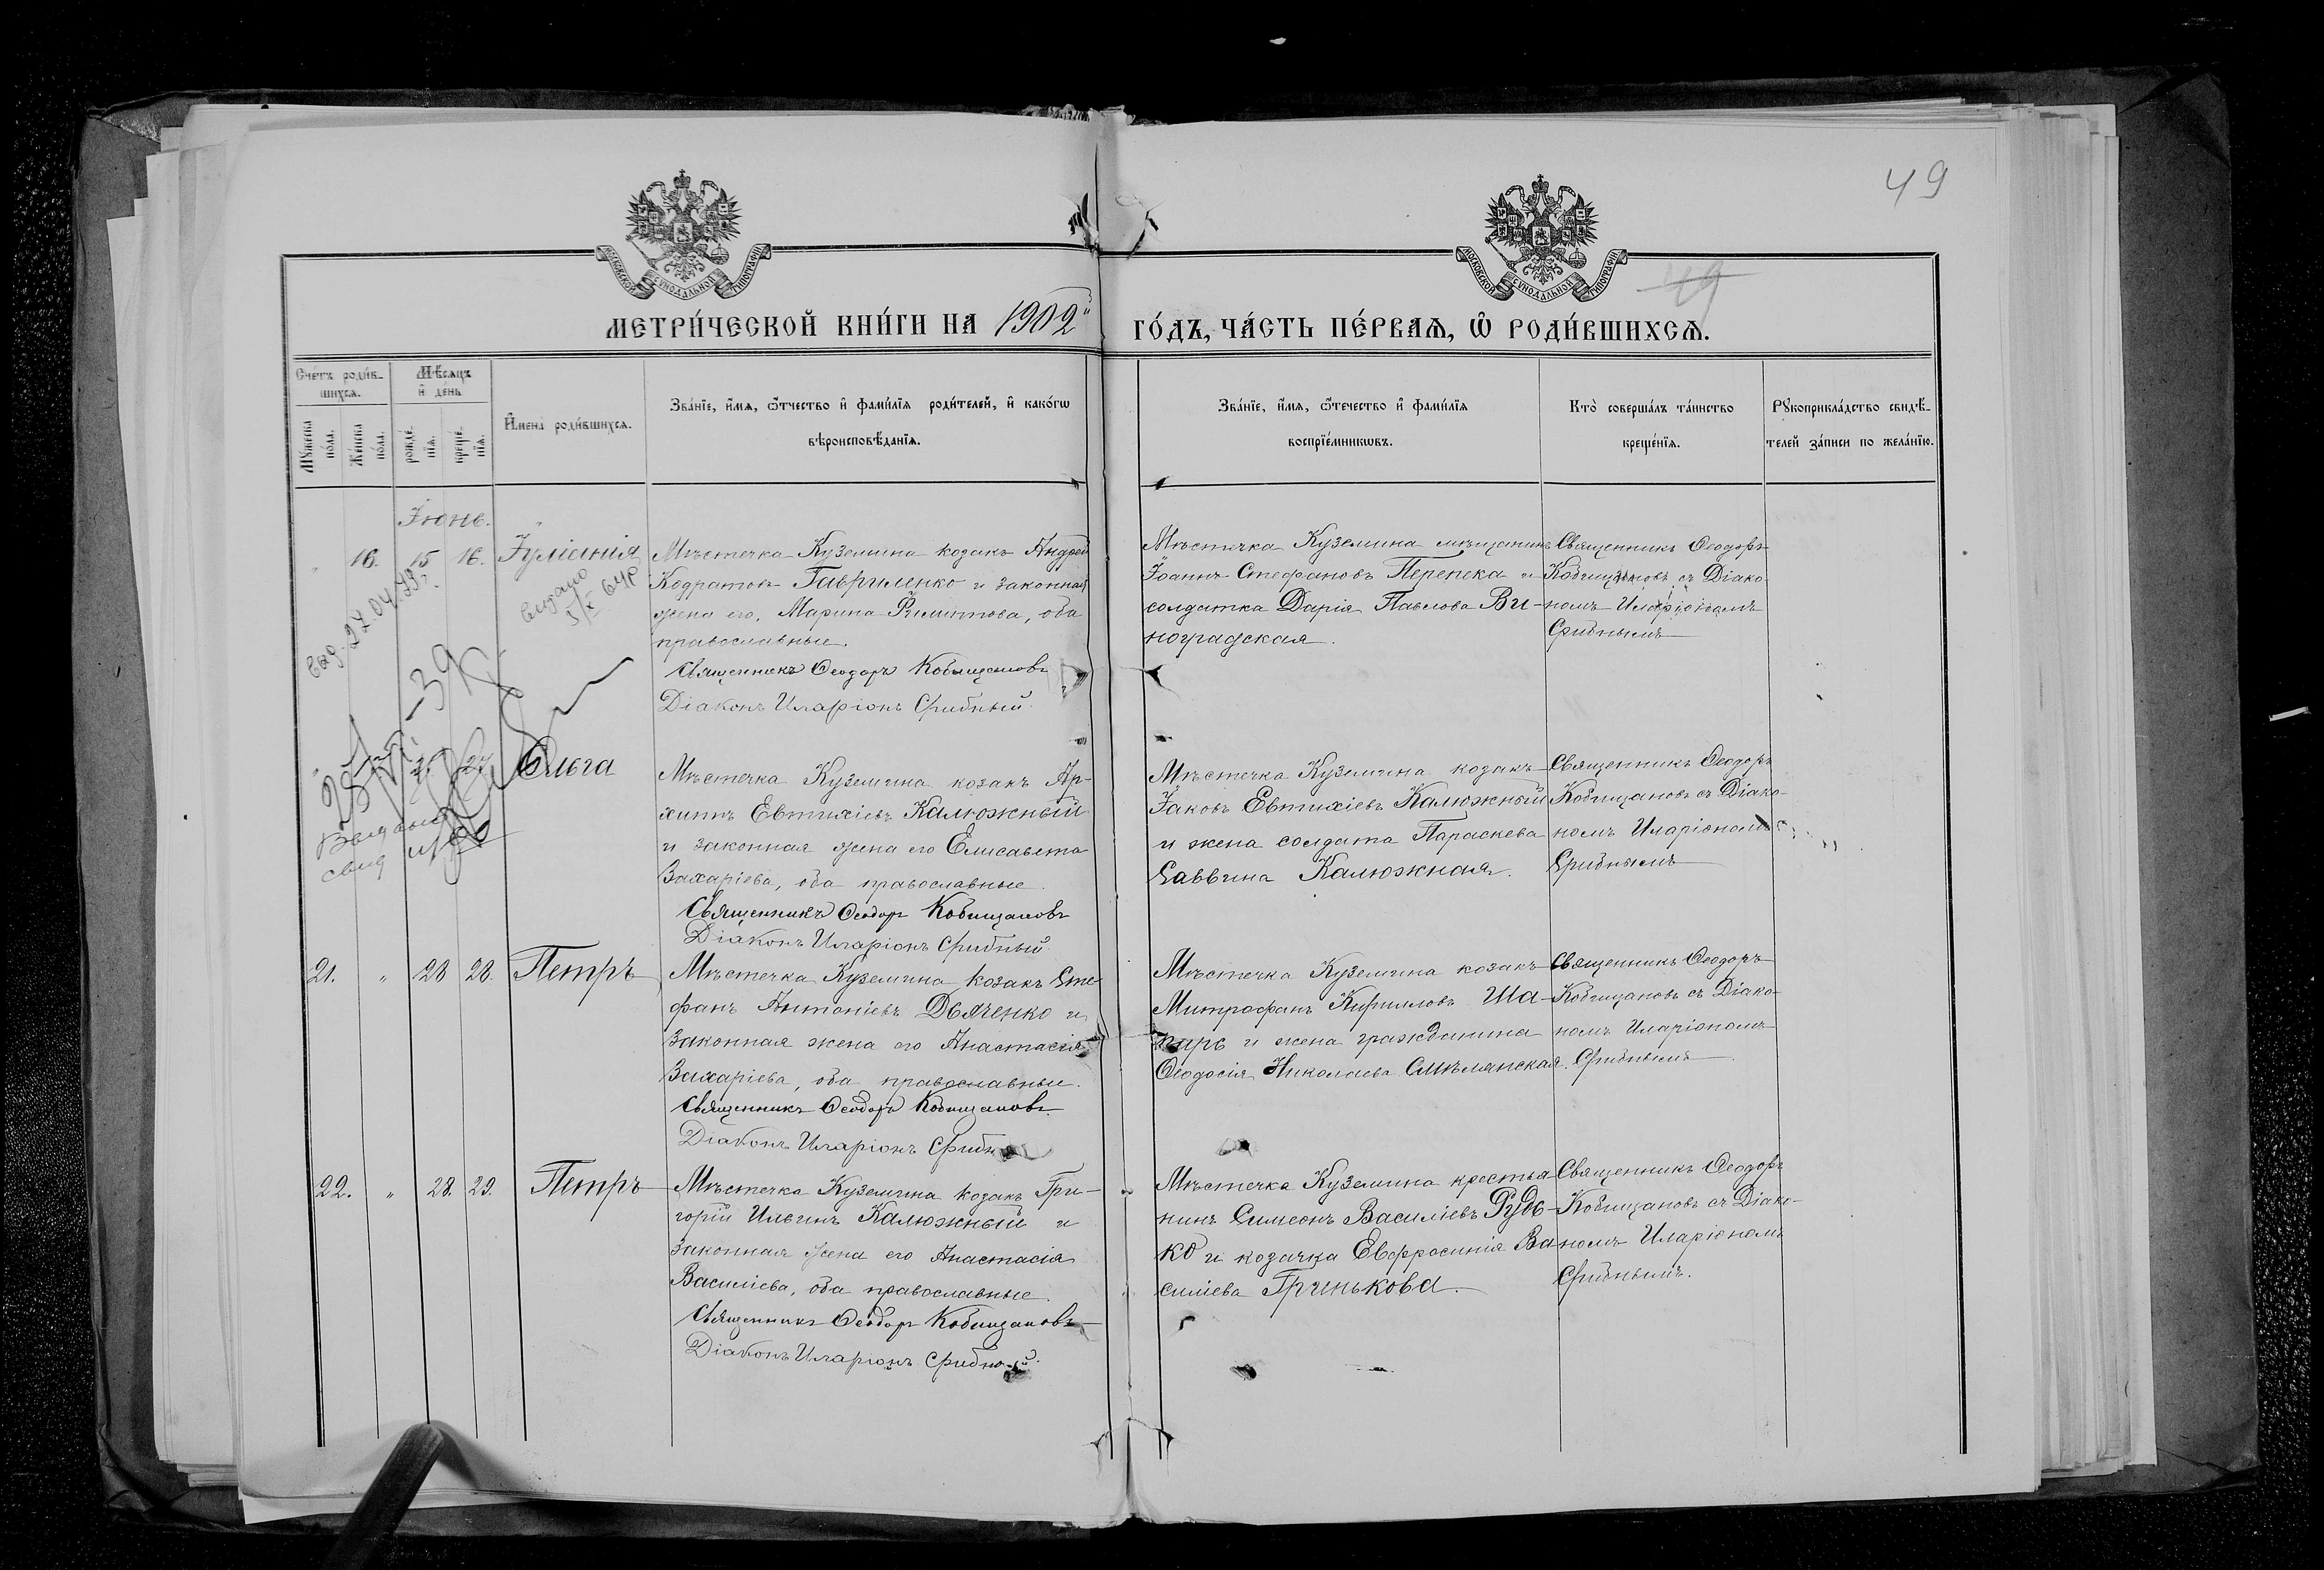 49
49
МОСКОВСКОЙ СѴНОДАЛЬНОЙ ТИПОГРАФІИ
МОСКОВСКОЙ СѴНОДАЛЬНОЙ ТИПОГРАФІИ
МЕТРИ́ЧЕСКОЙ КНИ́ГИ НА 1902й ГО́ДЪ, ЧА́СТЬ ПЕ́РВАѦ, Ѽ РОДИ́ВШИХСѦ.
Сче́тъ роди́в-
шихсѧ.
Мꙋжеска по́ла.
Же́нска по́ла.
Мѣ́сѧцъ
и҆ де́нь
рожде́-
нїѧ.
креще́-
нїѧ.
И҆мена̀ роди́вшихсѧ.
Зва́нїе, и҆́мѧ, ѻ҆́тчество и҆ фами́лїѧ роди́телей, и҆ како́гѡ
вѣроисповѣ́данїѧ.
Зва́нїе, и҆́мѧ, ѻ҆те́чество и҆ фами́лїѧ
воспрїе́мникѡвъ.
Кто̀ соверша́лъ та́инство
креще́нїѧ.
Рꙋкоприкла́дство свидѣ́-
телей за́писи по жела́нїю.
Іюнь.
" 16. 15 16. Іуліанія
Мѣстечка Куземина козакъ Андрей
Кодратовъ Гавриленко и законная
жена его, Марина Филиппова, оба
православные.
Священникъ Ѳеодоръ Кобищановъ
Діаконъ Иларіонъ Срибный.
Мѣстечка Куземина мѣщанинъ
Іоаннъ Стефановъ Перепека и
солдатка Дарія Павлова Ви-
ноградская.
Священникъ Ѳеодоръ
Кобищановъ съ Діако-
номъ Иларіономъ
Срибнымъ
Видано
5/X
выд. 27.04.
39
Видано
свид
27 Ольга
Мѣстечка Куземина козакъ Ар-
хиппъ Евтихіевъ Калюжный
и законная жена его Елисавета
Захаріева, оба православные.
Священникъ Ѳеодоръ Кобищановъ
Діаконъ Иларіонъ Срибный.
Мѣстечка Куземина козакъ
Іаковъ Евтихіевъ Калюжный
и жена солдата Параскева
Саввина Калюжная.
Священникъ Ѳеодоръ
Кобищановъ съ Діако-
номъ Иларіономъ
Срибнымъ
21. " 28 28. Петръ
Мѣстечка Куземина козакъ Сте-
фанъ Антоніевъ Дяченко и
законная жена его Анастасія
Захаріева, оба православные.
Священникъ Ѳеодоръ Кобищановъ
Діаконъ Иларіонъ Срибный
Мѣстечка Куземина козакъ
Митрофанъ Кирилловъ Ша-
парь и жена гражданина
Ѳеодосія Николаева Смѣлянская.
Священникъ Ѳеодоръ
Кобищановъ съ Діако-
номъ Иларіономъ
Срибнымъ
22. " 28. 29. Петръ
Мѣстечка Куземина козакъ Гри-
горій Ильинъ Калюжный и
законная жена его Анастасія
Василіева, оба православные.
Священникъ Ѳеодоръ Кобищановъ
Діаконъ Иларіонъ Срибный.
Мѣстечка Куземина крестья-
нинъ Симеонъ Василіевъ Рудь-
ко и козачка Евфросинія Ва-
силіева Гринькова.
Священникъ Ѳеодоръ
Кобищановъ съ Діако-
номъ Иларіономъ
Срибнымъ.